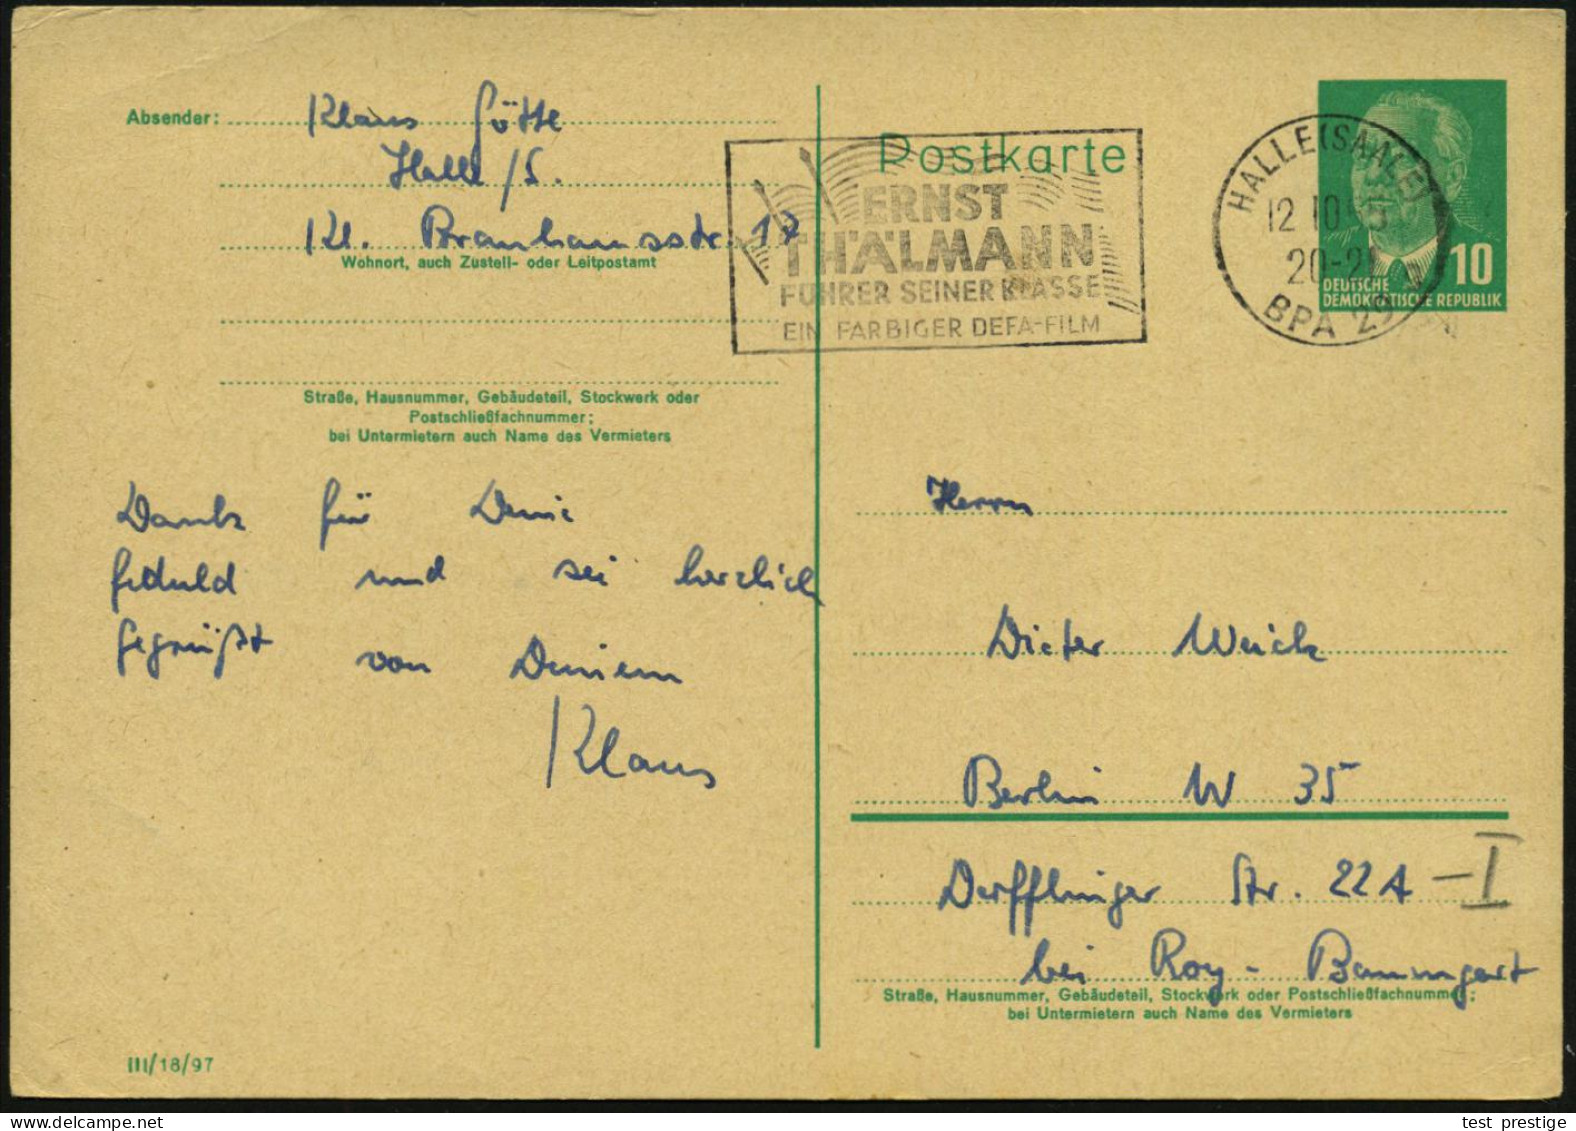 Absender: Klaus Götte
Halle/S.
Kl. Brauhausstr. 17
Wohnort, auch Zustell- oder Leitpostamt
Straße, Hausnummer, Gebäudeteil, Stockwerk oder
Postschließfachnummer;
bei Untermietern auch Name des Vermieters
Dank für Deine
Geduld und sei herzlich
gegrüßt von Deinem
Klaus
III/18/97
Postkarte
ERNST
THÄLMANN
FÜHRER SEINER KLASSE
EIN FARBIGER DEFA-FILM
HALLE (SAALE)
12 10
20-21
BPA 29
10
DEUTSCHE
DEMOKRATISCHE REPUBLIK
Herrn
Dieter Weick
Berlin W 35
Derfflinger Str. 22A -I
bei Roy-Baumgart
Straße, Hausnummer, Gebäudeteil, Stockwerk oder Postschließfachnummer;
bei Untermietern auch Name des Vermieters
test_prestige